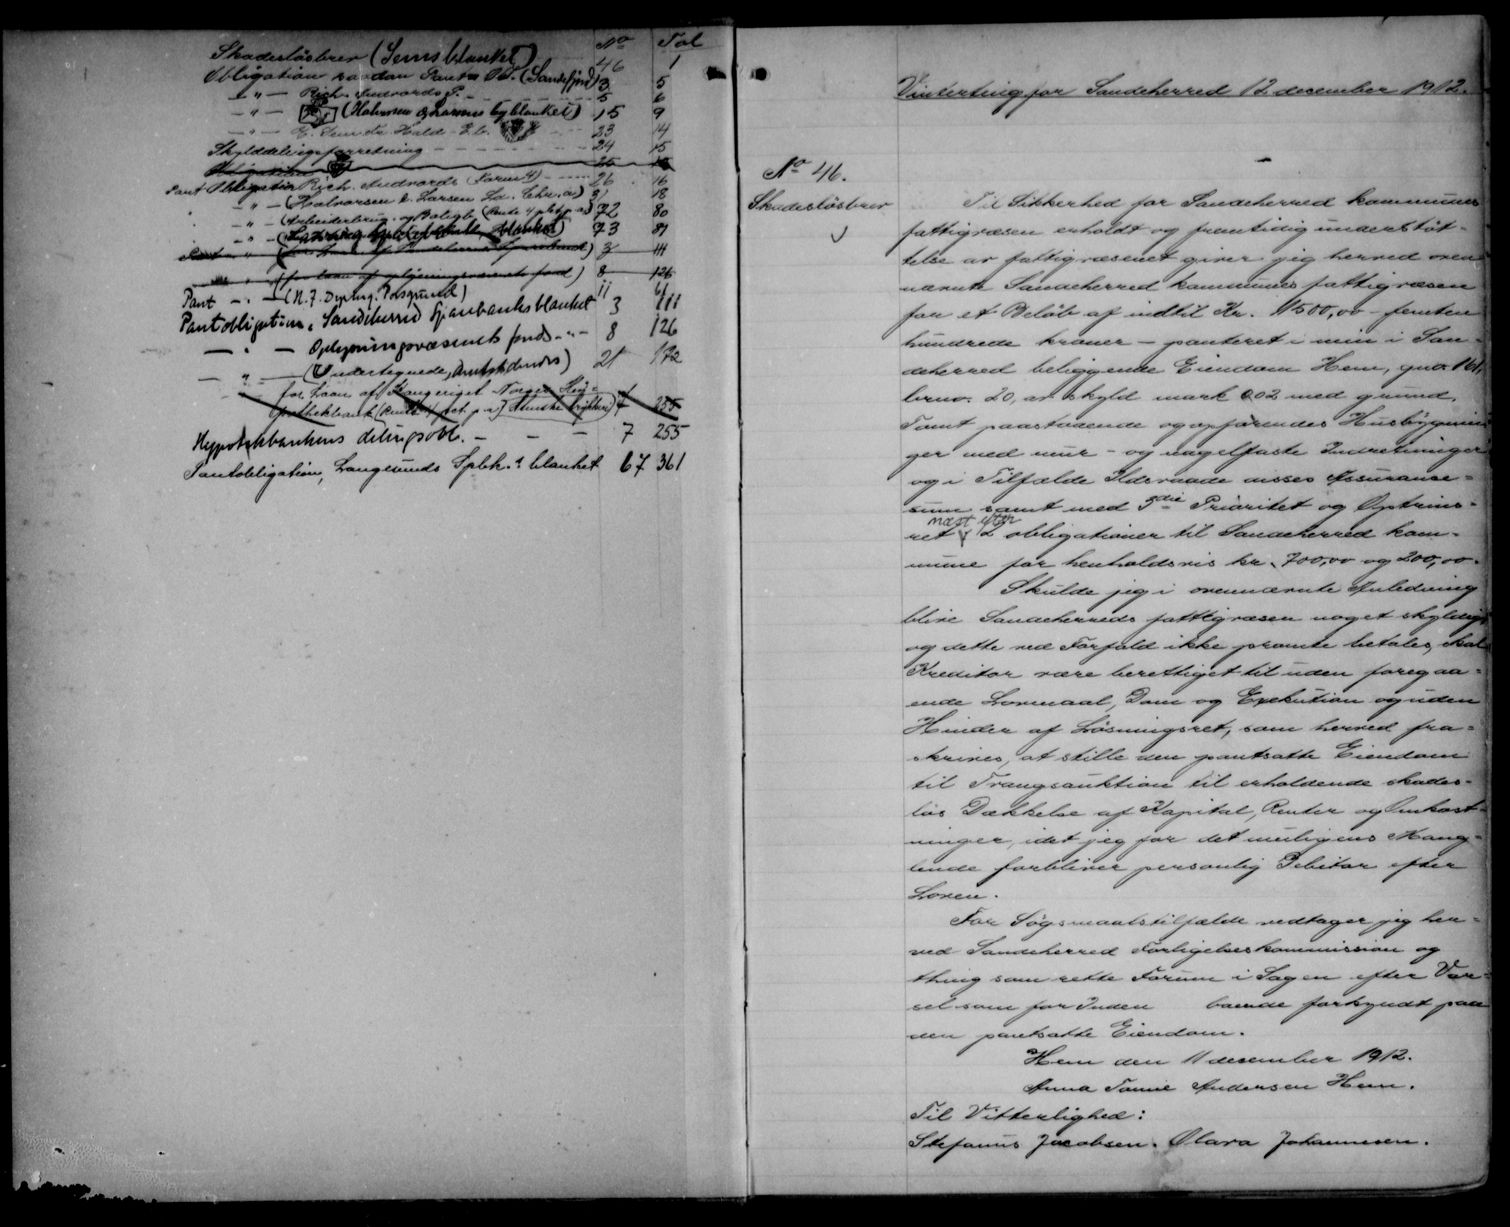 No Fol
Skadesløsbrev (Sems blanket) 46 1
Obligation saadan Pant (Sandefjord) 3 5
— " — Rich. Andvords P. 5 6
— " — (Halvorsen & Larsens by blanket) 15 9
— " — E. Sem Fr. Hald 23 14
Skylddelingsforretning 24 15
Obligation 25
Pant Obligation Rich. Andvords (Form 4) 26 16
— " — (Halvorsen & Larsen Ld. Chr.a) 31 18
— " — (Arbeiderbrug og Boligb. 72 80
— " — blanket) 73 81
3 111
— " — (for laan af oplysningsvæsenets fond) 8 126
Pant — " — (N. J. Porsgrund) 11 61
Pantobligation, Sandeherred Sparebanks blanket 3 111
— " — Oplysningsvæsenets fonds — " — 8 126
— " — (Undertegnede, Amtstidendes) 21 172
— " — for Laan af Kongeriget Norges Hy-
pothekbank 7 255
Hypotekbankens delingsobl. — — — 7 255
Pantobligation, Langesunds Spbk.s blanket 67 361
Vinterting for Sandeherred 12 december 1912.
No 46.
Skadesløsbrev
Til Sikkerhed for Sandeherred kommunes
fattigvæsen erholdt og fremtidig understøt-
telse av fattigvæsenet giver jeg herved oven
nævnte Sandeherred kommunes fattigvæsen
for et Beløb af indtil Kr. 1500,00 – femten
hundrede kroner – panteret i min i San-
deherred beliggende Eiendom Hem, gno. 161,
brno. 20, av skyld mark 0.02 med grund,
Tomt paastaaende og opførendes Husbygnin
ger med mur- og nagelfaste Indretninger
og i Tilfælde Ildsvaade disses Assurance-
sum samt med 3die Prioritet og Optrins-
ret næst efter 2 obligationer til Sandeherred kom-
mune for henholdsvis kr. 700,00 og 200,00.
Skulde jeg i ovennævnte Anledning
blive Sandeherreds fattigvæsen noget skyldig
og dette ved Forfald ikke promte betales, skal
Kreditor være berettiget til uden foregaa-
ende Lovmaal, Dom og Exekution og uden
Hinder af Løsningsret, som herved fra-
skrives, at stille den pantsatte Eiendom
til Tvangsauktion til erholdende skades-
løs Dækkelse af Kapital, Renter og Omkost-
ninger, idet jeg for det muligens Mang-
lende forbliver personlig Debitor efter
Loven.
For Søgsmaalstilfælde vedtager jeg her-
ved Sandeherred Forligelseskommission og
thing som rette Forum i Sagen efter Var-
sel som for Inden boende forkyndt paa
den pantsatte Eiendom.
Hem den 11 desember 1912.
Anna Tomie Andersen Hem.
Til Vitterlighed:
Stefanus Jacobsen. Olava Johannesen.